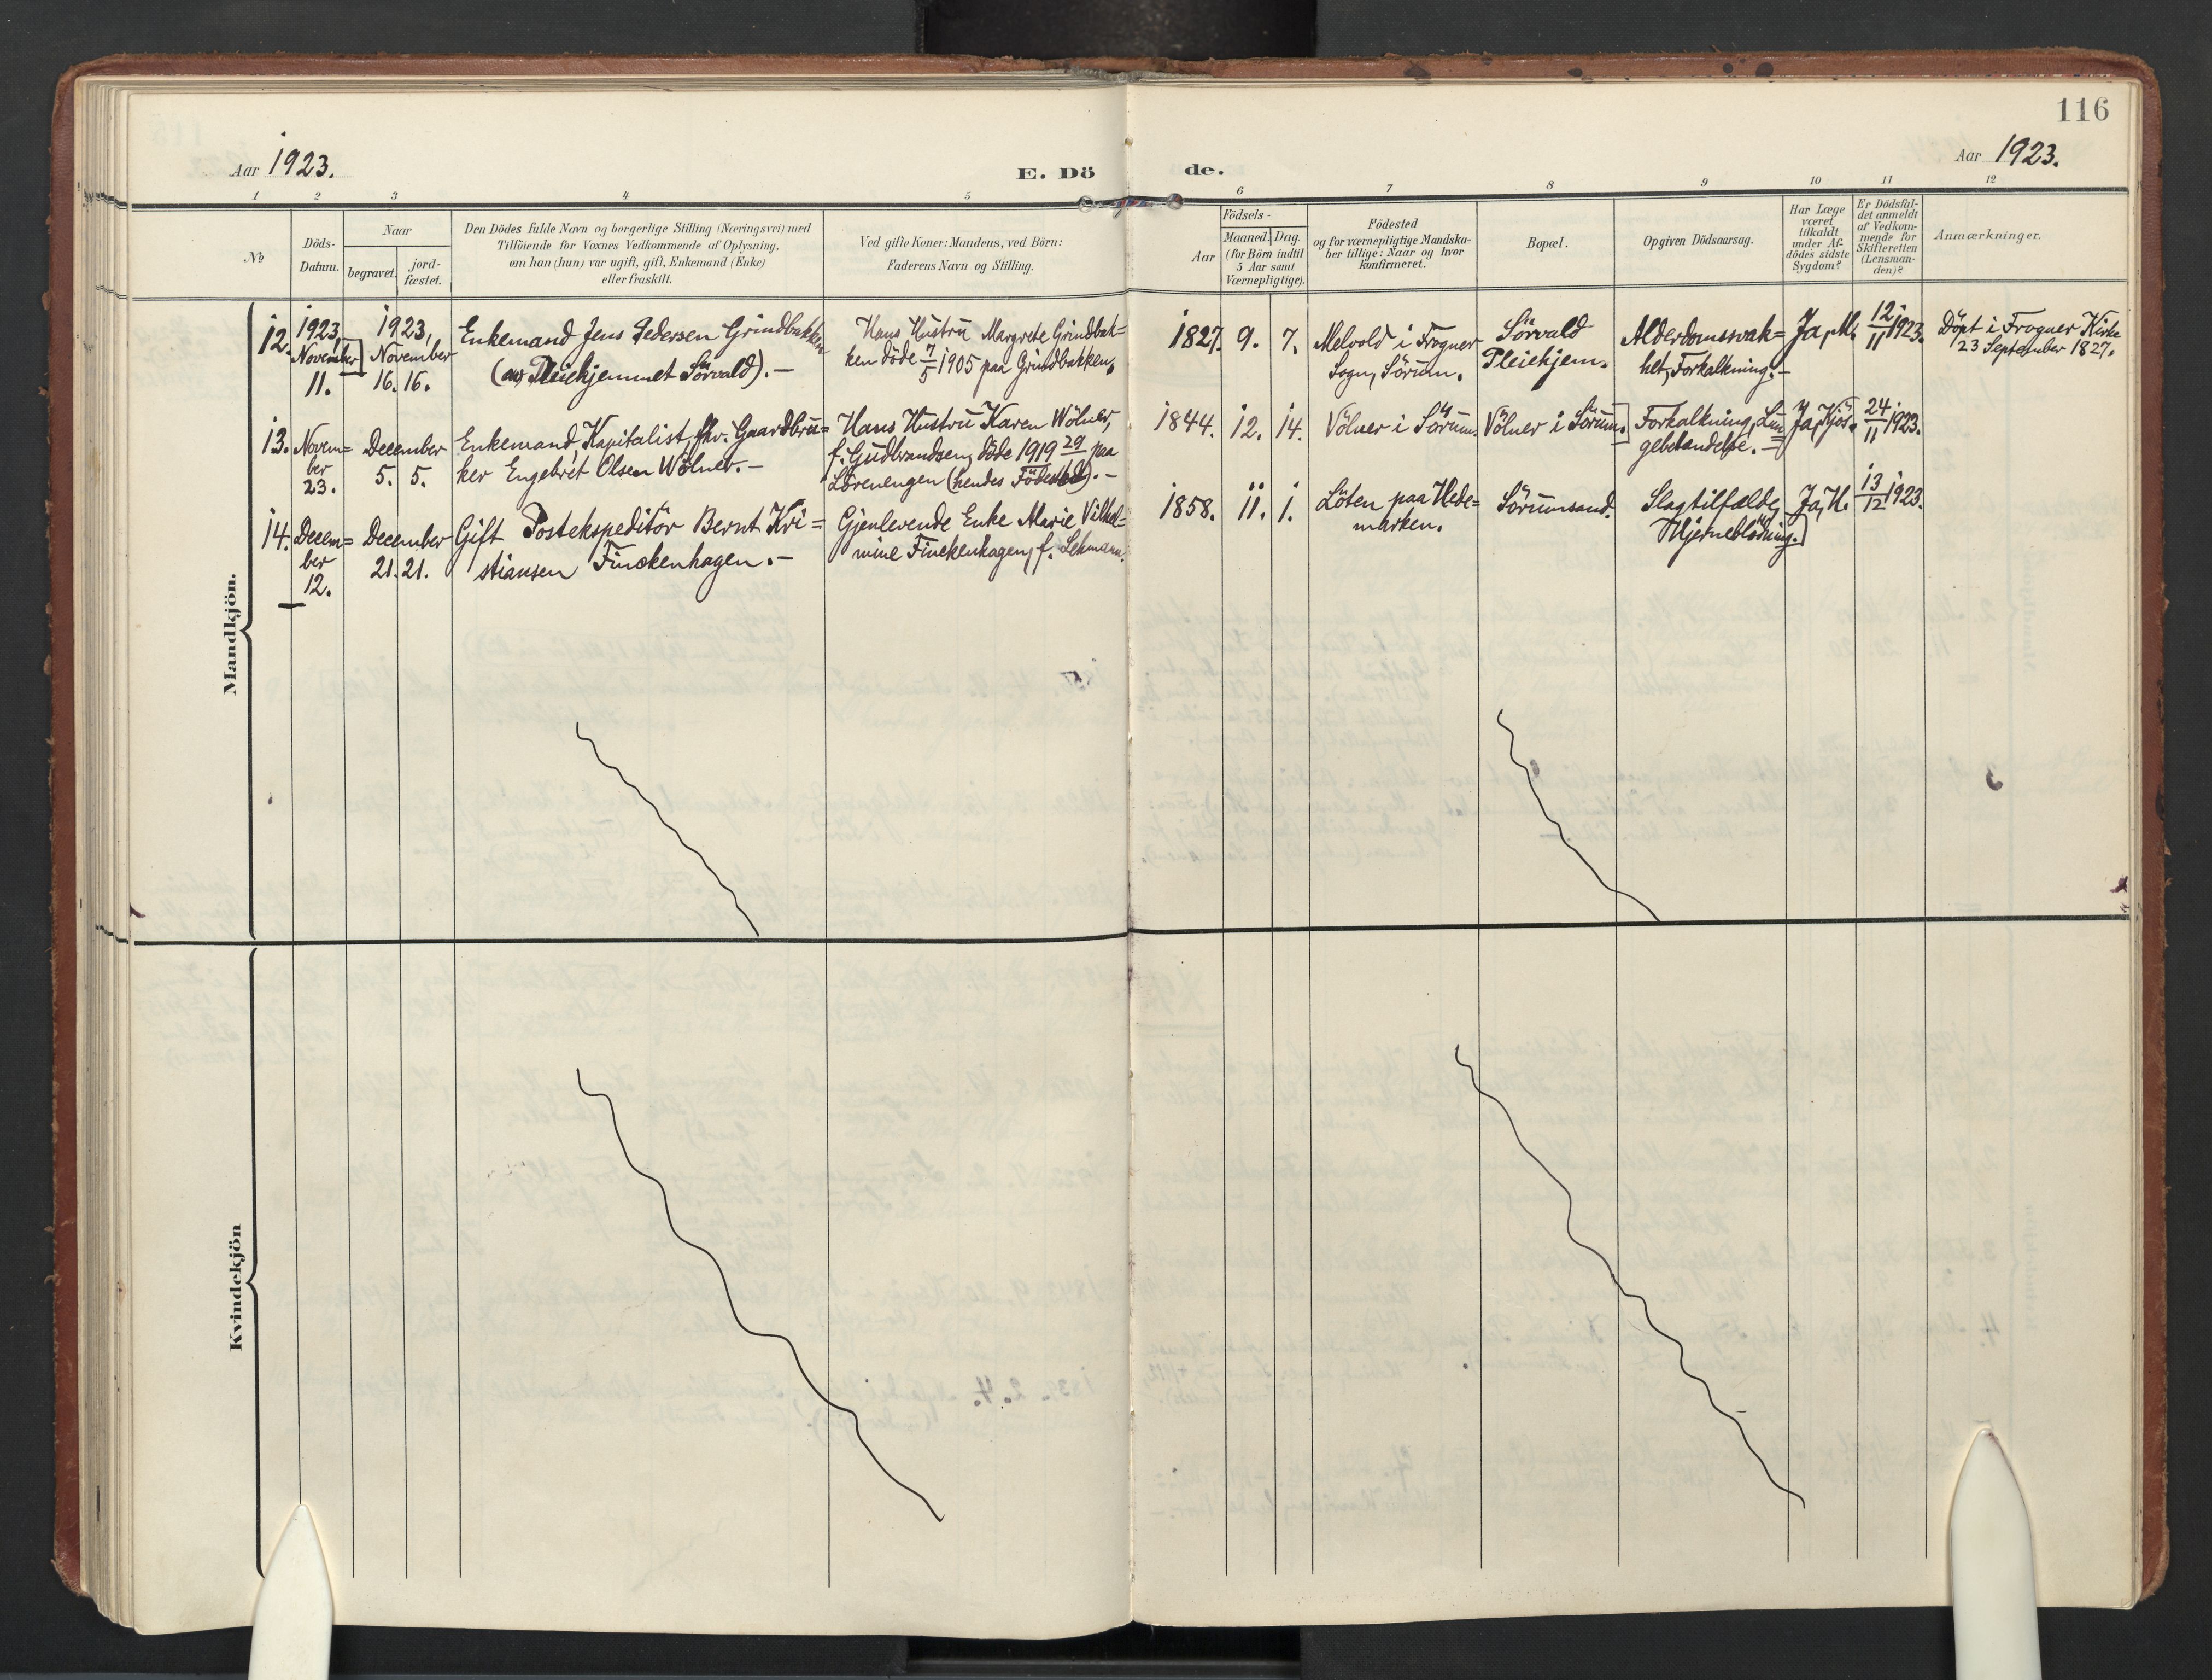 116
Aar 1923.
E. Dö de.
Aar 1923.
1 2 3 4 5 6 7 8 9 10 11 12
№
Döds-
Datum.
Naar
begravet.
jord-
fæstet.
Den Dödes fulde Navn og borgerlige Stilling (Næringsvei) med
Tilföiende for Voxnes Vedkommende af Oplysning,
om han (hun) var ugift, gift, Enkemand (Enke)
eller fraskilt.
Ved gifte Koner: Mandens, ved Börn:
Faderens Navn og Stilling.
Födsels-
Aar
Maaned. Dag.
(for Börn indtil
5 Aar samt
Værnepligtige).
Födested
og for værnepligtige Mandska-
ber tillige: Naar og hvor
konfirmeret.
Bopæl.
Opgiven Dödsaarsag.
Har Læge
været
tilkaldt
under Af-
dödes sidste
Sygdom?
Er Dödsfal-
det anmeldt
af Vedkom-
mende for
Skifteretten
(Lensman-
den)?
Anmærkninger.
Mandkjön.
12.
1923,
November
11.
1923,
November
16. 16.
Enkemand Jens Pedersen Grindbakken
(av Pleiehjemmet Sörvald).—
Hans Hustru Margrete Grindbak=
ken döde 7/5 1905 paa Grindbakken.
1827. 9. 7.
Melvold i Frogner
Sogn, Sörum.
Sörvald
Pleiehjem.
Alderdomssvak=
het, Forkalkning.—
Ja, M.
12/11 1923.
Döpt i Frogner Kirke
23 September 1827.
13.
Novem=
ber
23.
December
5. 5.
Enkemand, Kapitalist, fhv. Gaardbru=
ker Engebret Olsen Wölner.—
Hans Hustru Karen Wölner,
f. Gudbrandsen, döde 1919 29/ paa
Lörenengen (hendes Födested).—
1844. 12. 14.
Völner i Sörum.
Völner i Sörum.
Forkalkning, Lun=
gebetændelse.—
Ja, Kjös.
24/11 1923.
14.
Decem=
ber
12.
December
21. 21.
Gift Postekspeditör Bernt Kri=
stiansen Finckenhagen.—
Gjenlevende Enke Marie Vilhel=
mine Finckenhagen, f. Lehmann.
1858. 11. 1.
Löten paa Hede=
marken.
Sörumsand.
Slagtilfælde,
Hjerneblödning.
Ja, H.
13/12 1923.
Kvindekjön